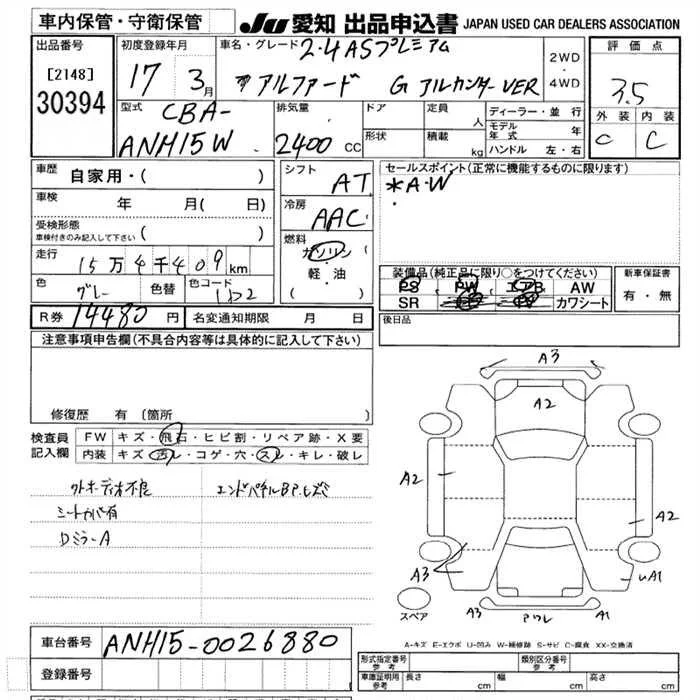 車内保管・守衛保管
JU 愛知 出品申込書 JAPAN USED CAR DEALERS ASSOCIATION
出品番号
[2148]
30394
初度登録年月
17 3月
車名・グレード
2.4ASプレミアム
アルファード G アルカンターVER
2WD
・
4WD
評価点
3.5
外装 内装
C C
型式
CBA-
ANH15W
排気量
2400 CC
ドア
形状
定員 人
積載 kg
ディーラー・並行
モデル年式 年
ハンドル 左・右
車歴
自家用・( )
車検 年 月( 日)
受検形態
車検付きのみ記入して下さい ( )
走行
15万4千409km
色 グレー 色替 色コード 1D2
シフト
AT
冷房
AAC
燃料
ガソリン
軽・油
( )
セールスポイント(正常に機能するものに限ります)
*A.W
装備品(純正品に限り○をつけてください)
PS PW エアB AW
SR カワシート
新車保証書
有・無
R券 14480 円 名変通知期限 月 日
後日品
注意事項申告欄(不具合内容等は具体的に記入して下さい)
修復歴 有(箇所
検査員
記入欄
FW キズ・飛石・ヒビ割・リペア跡・X要
内装 キズ・汚レ・コゲ・穴・スレ・キレ・破レ
外オーディオ不良
シートカバー有
DミラーA
エンドパネルBP.ヒズミ
A3
A2
A2
A2
A3
A3
アワレ
A1
UA1
スペア
A-キズ E-エクボ U-凹み W-補修跡 S-サビ C-腐食 XX-交換済
車台番号 ANH15-0026880
登録番号
形式指定番号
参考
類別区分番号
参考
車庫証明用
参考
長さ cm 幅 cm 高さ cm